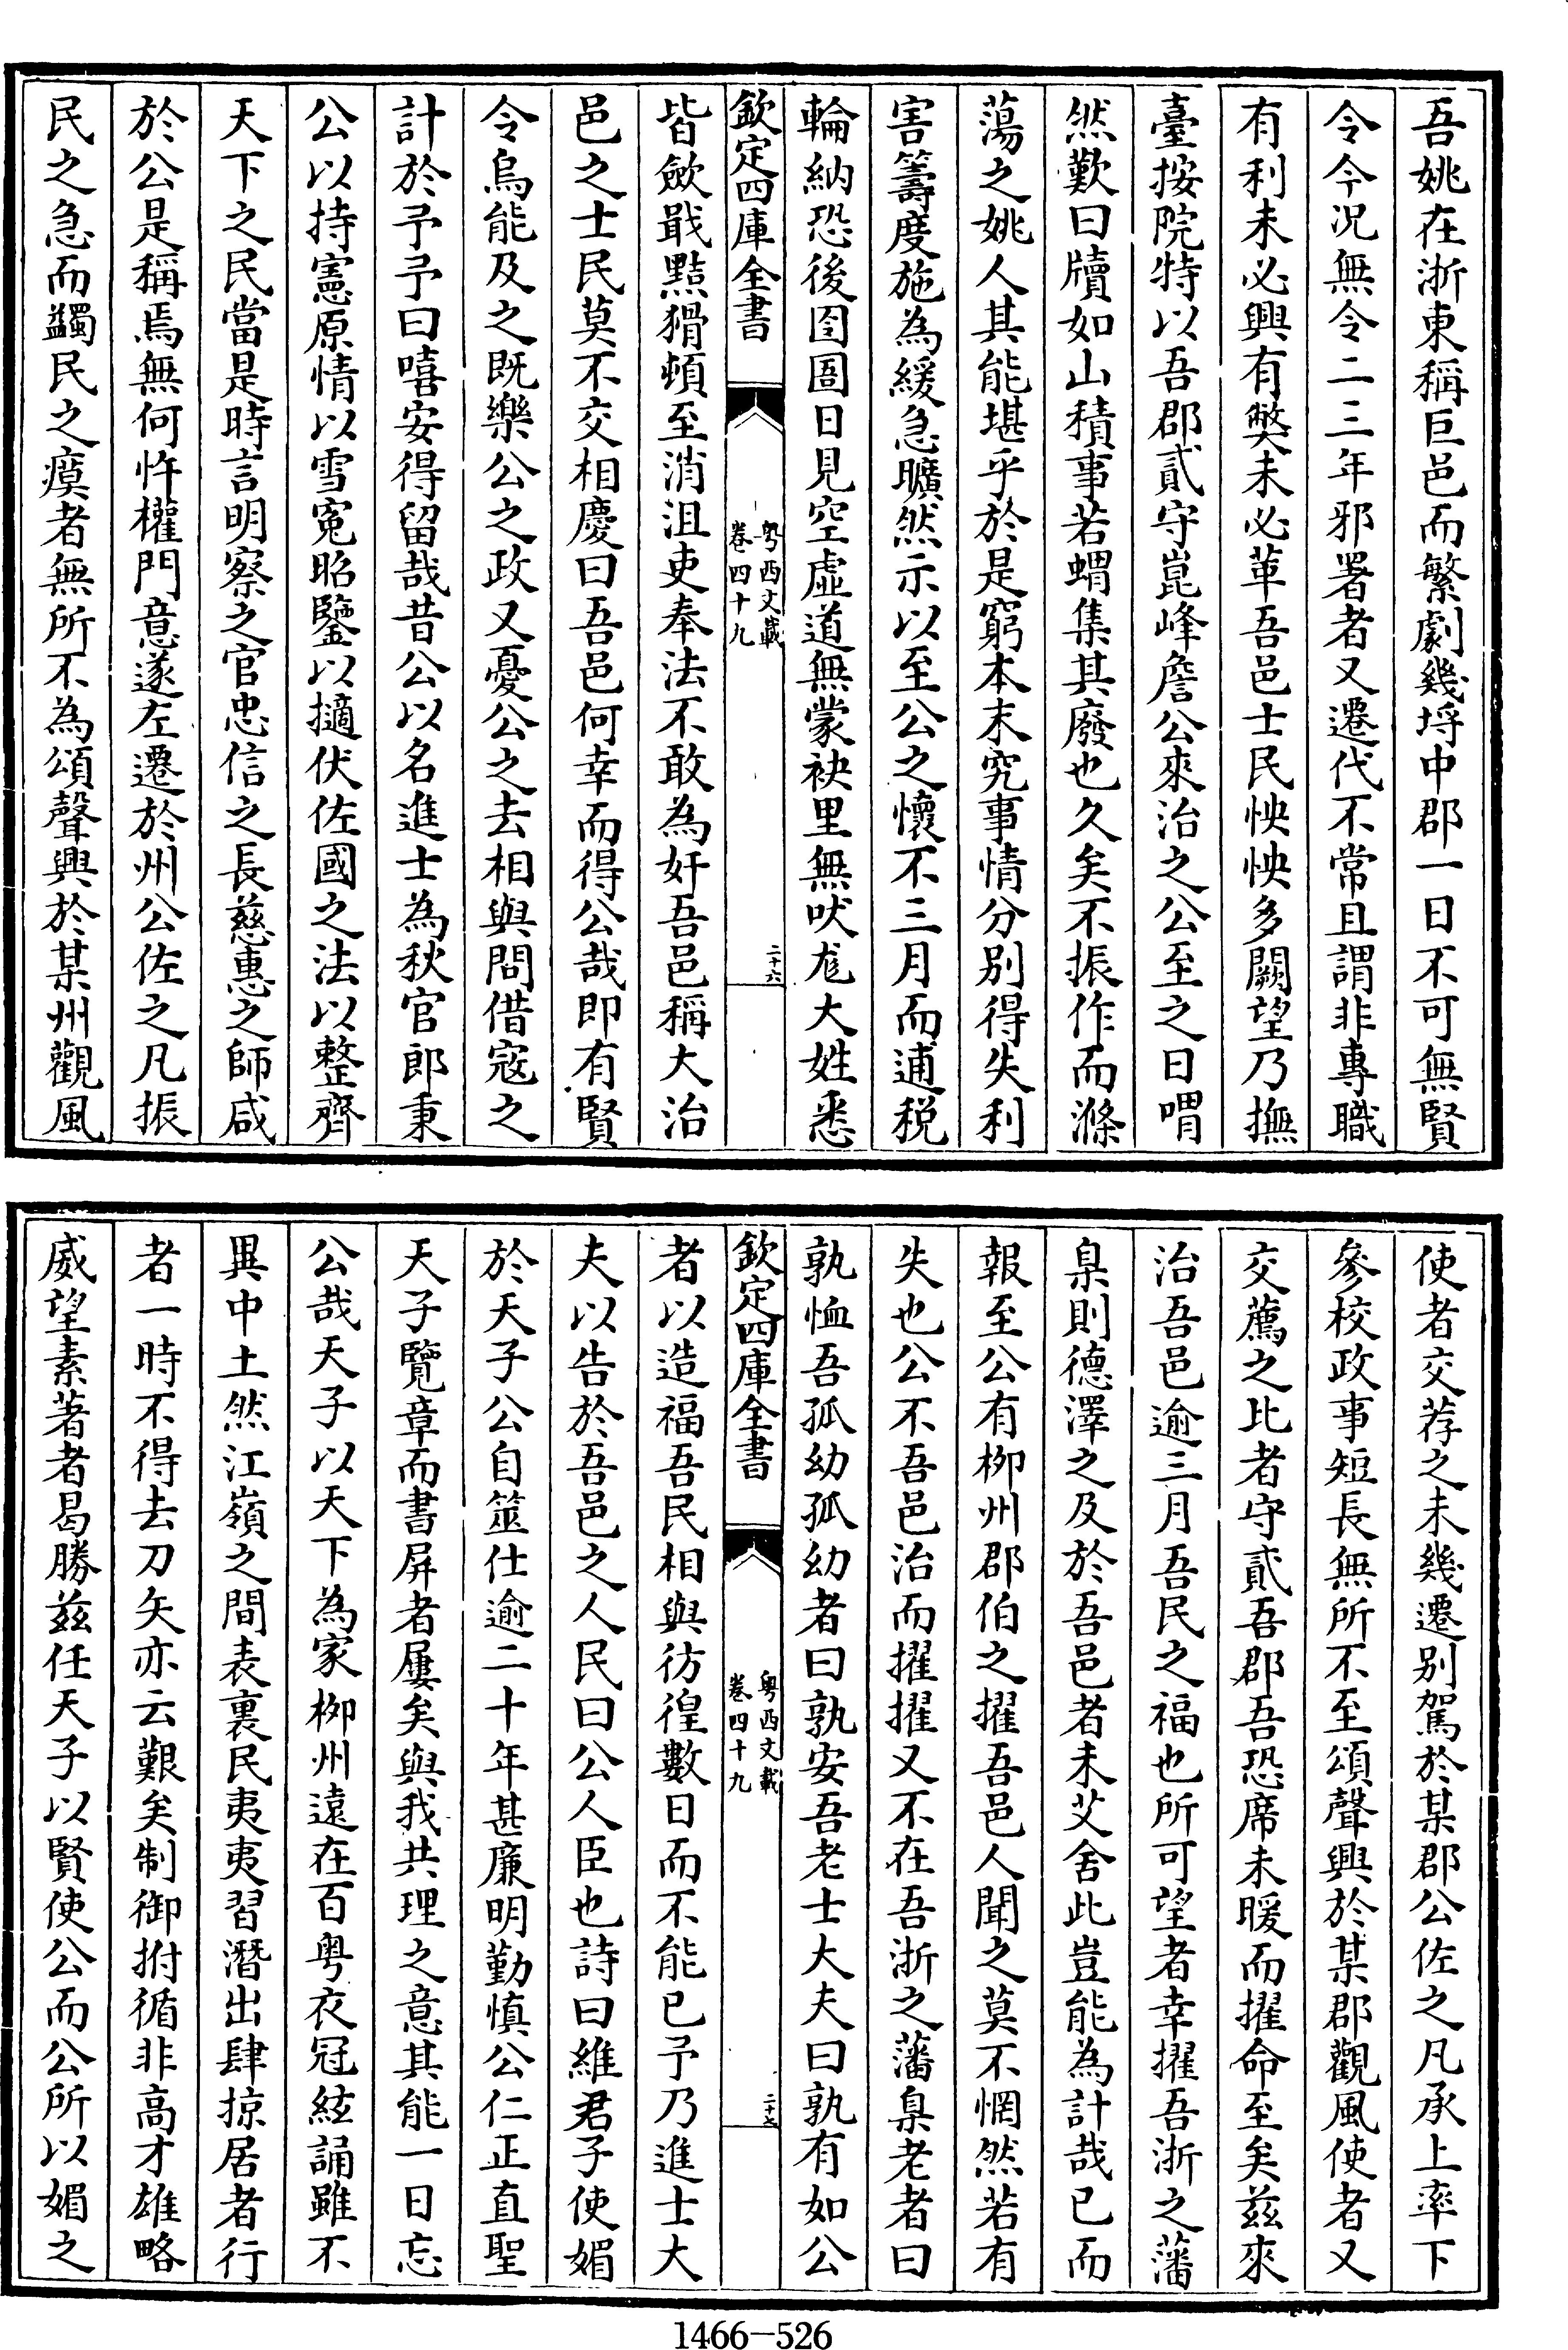 吾姚在浙東稱巨邑而繁劇幾埒中郡一日不可無賢
令今况無令二三年邪署者又遷代不常且謂非專職
有利未必興有獘未必革吾邑士民怏怏多闕望乃撫
臺按院特以吾郡貳守崑峰詹公來治之公至之日喟
然歎曰牘如山積事若蝟集其廢也久矣不振作而滌
蕩之姚人其能堪乎於是窮本末究事情分别得失利
害籌度施為緩急曠然示以至公之懷不三月而逋税
輪納恐後囹圄日見空虚道無蒙袂里無吠尨大姓悉
欽定四庫全書
粤西文載
卷四十九
二十六
皆歛戢黠猾頓至消沮吏奉法不敢為奸吾邑稱大治
邑之士民莫不交相慶曰吾邑何幸而得公哉即有賢
令烏能及之既樂公之政又憂公之去相與問借宼之
計於予予曰嘻安得留哉昔公以名進士為秋官郎秉
公以持憲原情以雪寃昭鑒以擿伏佐國之法以整齊
天下之民當是時言明察之官忠信之長慈惠之師咸
於公是稱焉無何忤權門意遂左遷於州公佐之凡振
民之急而蠲民之瘼者無所不為頌聲興於某州觀風
使者交荐之未幾遷别駕於某郡公佐之凡承上率下
參校政事短長無所不至頌聲興於某郡觀風使者又
交薦之比者守貳吾郡吾恐席未暖而擢命至矣兹來
治吾邑逾三月吾民之福也所可望者幸擢吾浙之藩
臬則德澤之及於吾邑者未艾舍此豈能為計哉已而
報至公有栁州郡伯之擢吾邑人聞之莫不惘然若有
失也公不吾邑治而擢擢又不在吾浙之藩臬老者曰
孰恤吾孤幼孤幼者曰孰安吾老士大夫曰孰有如公
欽定四庫全書
粤西文載
卷四十九
二十七
者以造福吾民相與彷徨數日而不能已予乃進士大
夫以告於吾邑之人民曰公人臣也詩曰維君子使媚
於天子公自筮仕逾二十年甚廉明勤慎公仁正直聖
天子覽章而書屏者屢矣與我共理之意其能一日忘
公哉天子以天下為家栁州遠在百粤衣冠絃誦雖不
異中土然江嶺之間表裏民夷夷習潛出肆掠居者行
者一時不得去刀矢亦云艱矣制御拊循非高才雄略
威望素著者曷勝兹任天子以賢使公而公所以媚之
1466-526